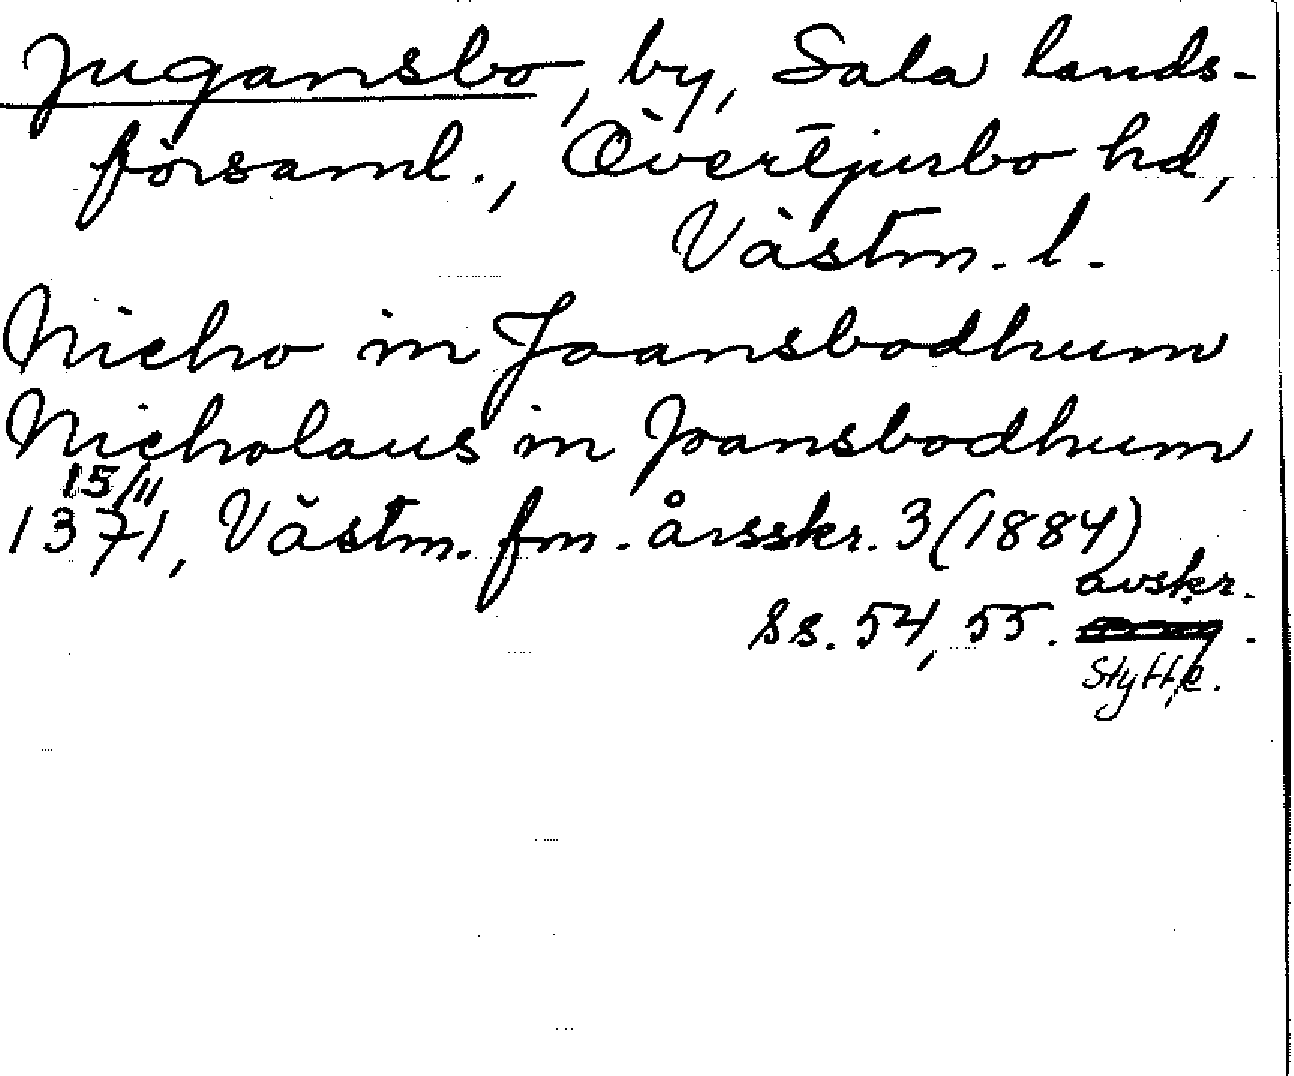 Jugansbo, by, Sala lands-
församl., Övertjurbo hd,
Västm. l.
Nicho in Joansbodhum
Nicholaus in Joansbodhum
15/11
1371, Västm. fm. årsskr. 3 (1884)
avskr.
ss. 54, 55.
Styffe.